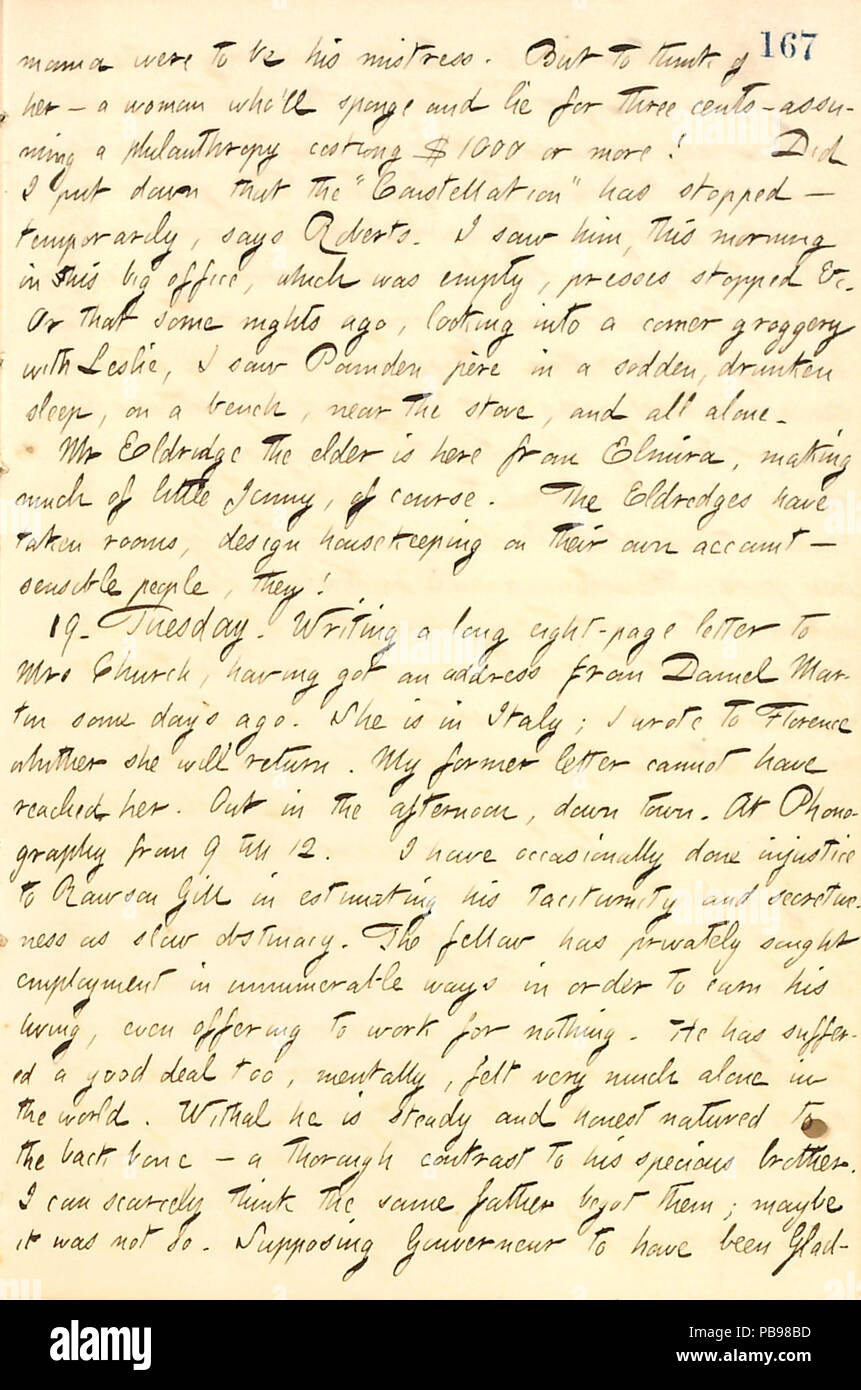 167
mama were to be his mistress. But to think of
her — a woman who'll sponge and lie for three cents — assu-
ming a philanthropy costing $1000 or more! Did
I put down that the "Constellation" has stopped —
temporarily, says Roberts. I saw him, this morning
in his big office, which was empty, presses stopped &c.
Or that some nights ago, looking into a corner groggery
with Leslie, I saw Pounden père in a sodden, drunken
sleep, on a bench, near the stove, and all alone.
Mr Eldredge the elder is here from Elmira, making
much of little Jenny, of course. The Eldredges have
taken rooms, design housekeeping on their own account —
sensible people, they!
19. Tuesday. Writing a long eight-page letter to
Mrs Church, having got an address from Damel Mar-
tin some days ago. She is in Italy; I wrote to Florence
whither she will return. My former letter cannot have
reached her. Out in the afternoon, down town. At Phono-
graphy from 9 till 12. I have occasionally done injustice
to Rawson Gill in estimating his taciturnity and secretive-
ness as slow obstinacy. The fellow has privately sought
employment in innumerable ways in order to earn his
living, even offering to work for nothing. He has suffer-
ed a good deal too, mentally, felt very much alone in
the world. Withal he is steady and honest natured to
the back bone — a thorough contrast to his specious brother.
I can scarcely think the same father begot them; maybe
it was not so. Supposing Gouverneur to have been Glad-
alamy
Image ID: PB98BD
www.alamy.com